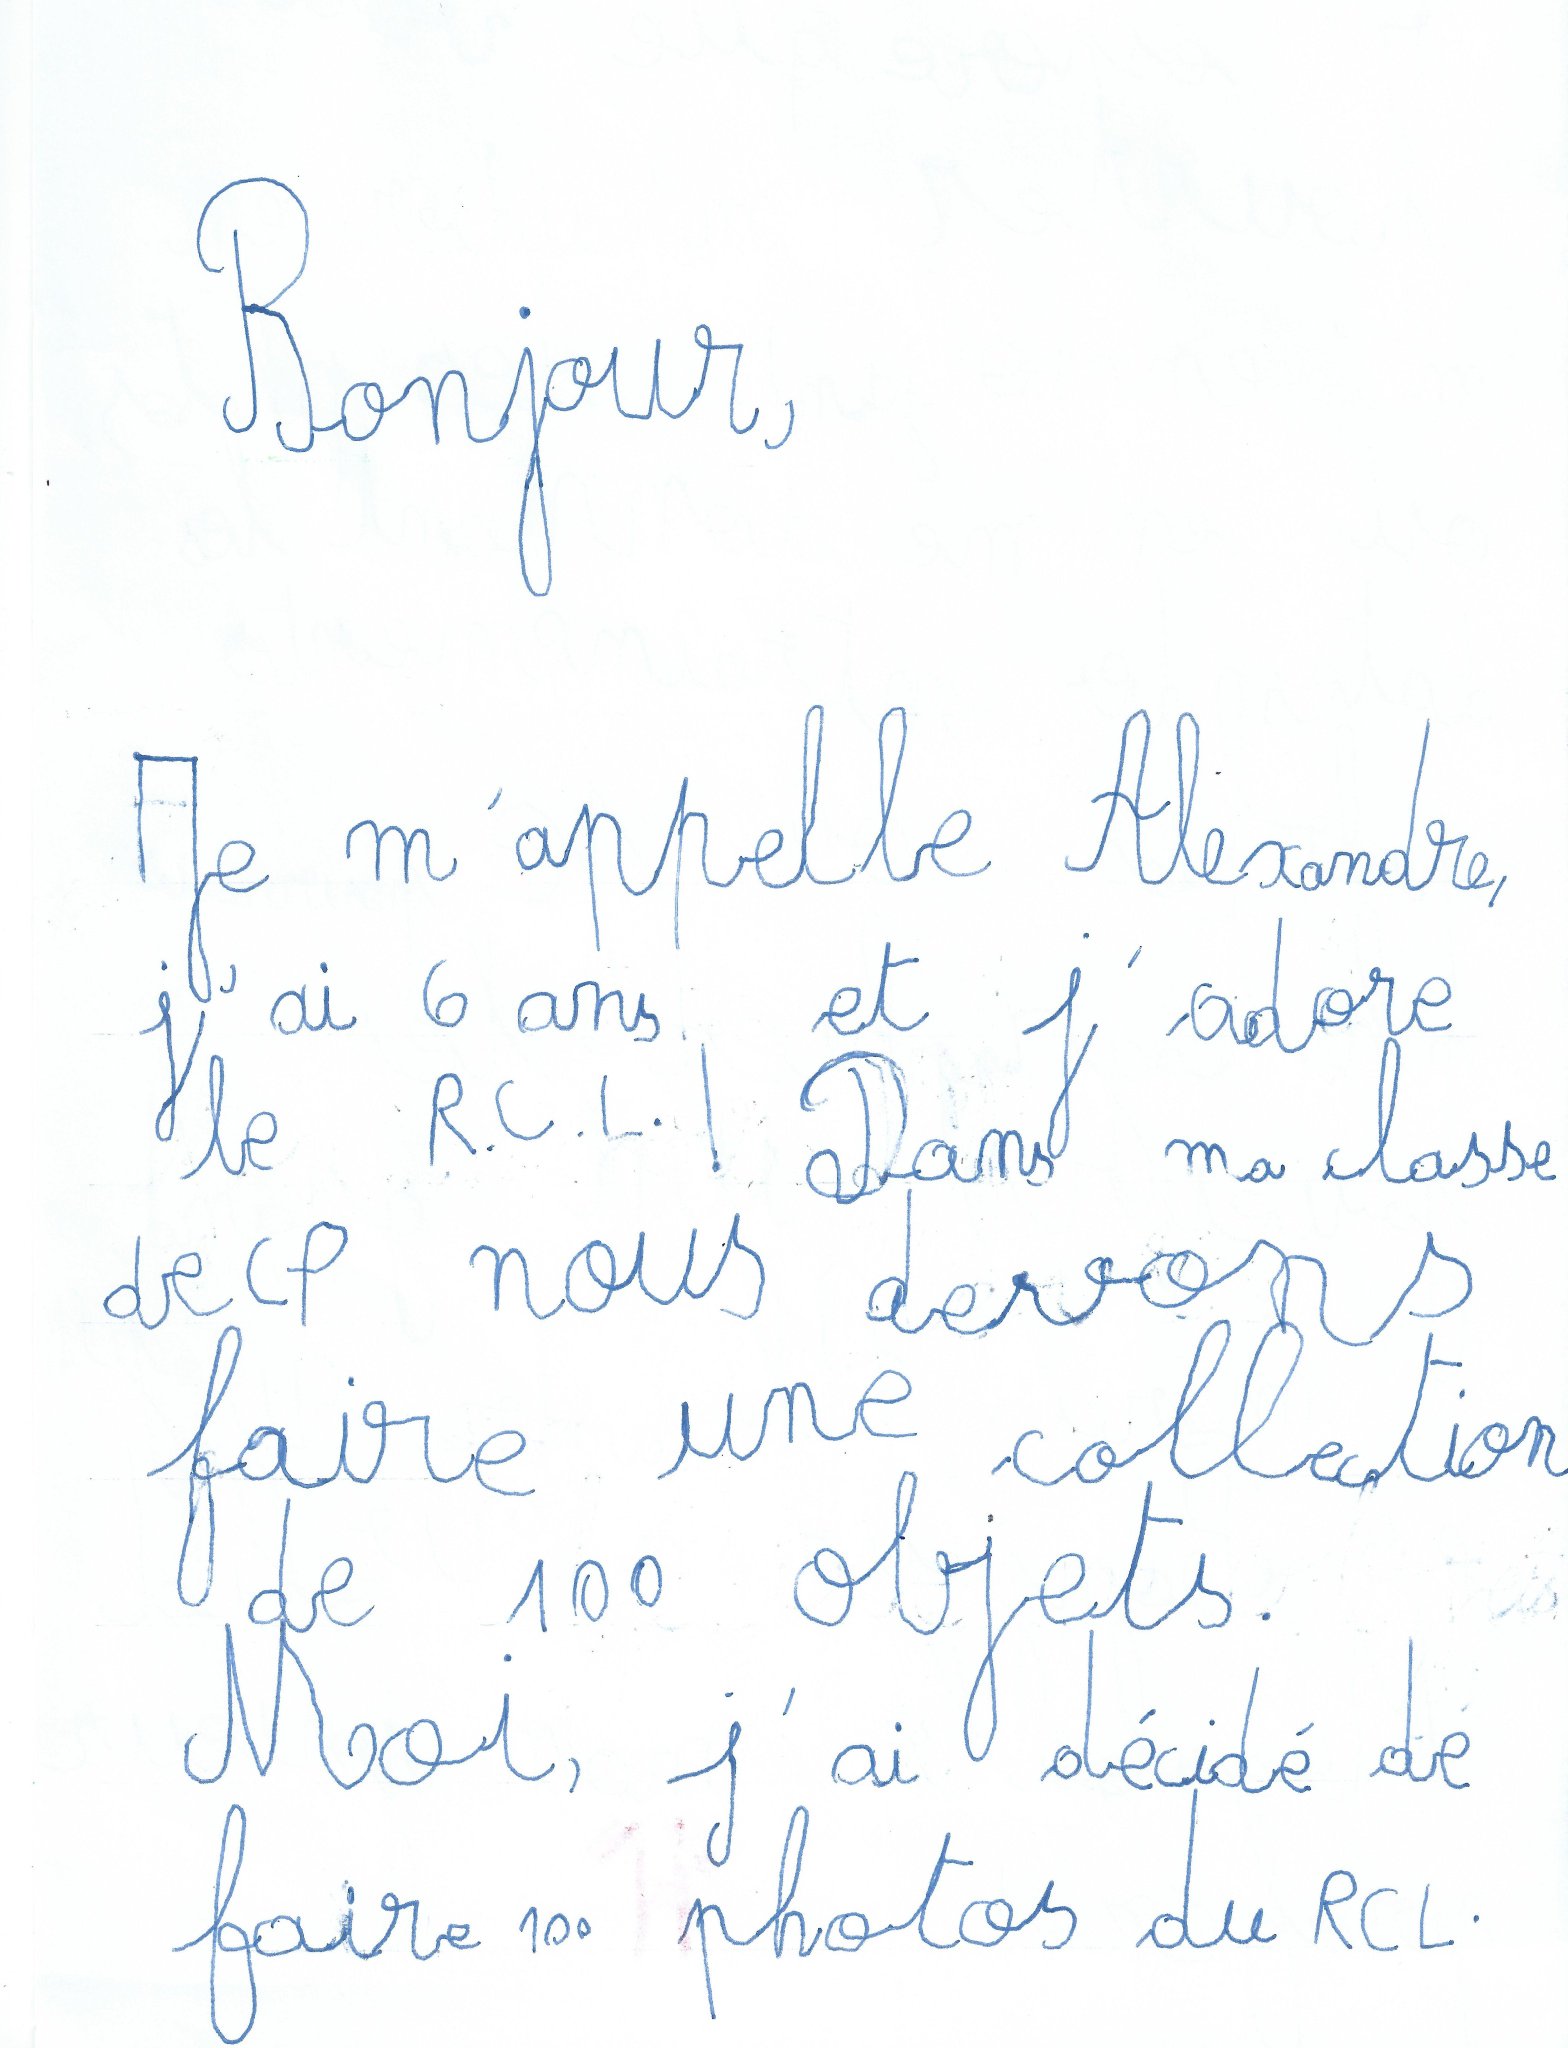 Bonjour,
Je m'appelle Alexandre,
j'ai 6 ans et j'adore
le R.C.L. ! Dans ma classe
de CP nous devons
faire une collection
de 100 objets.
Moi, j'ai décidé de
faire 100 photos du RCL.